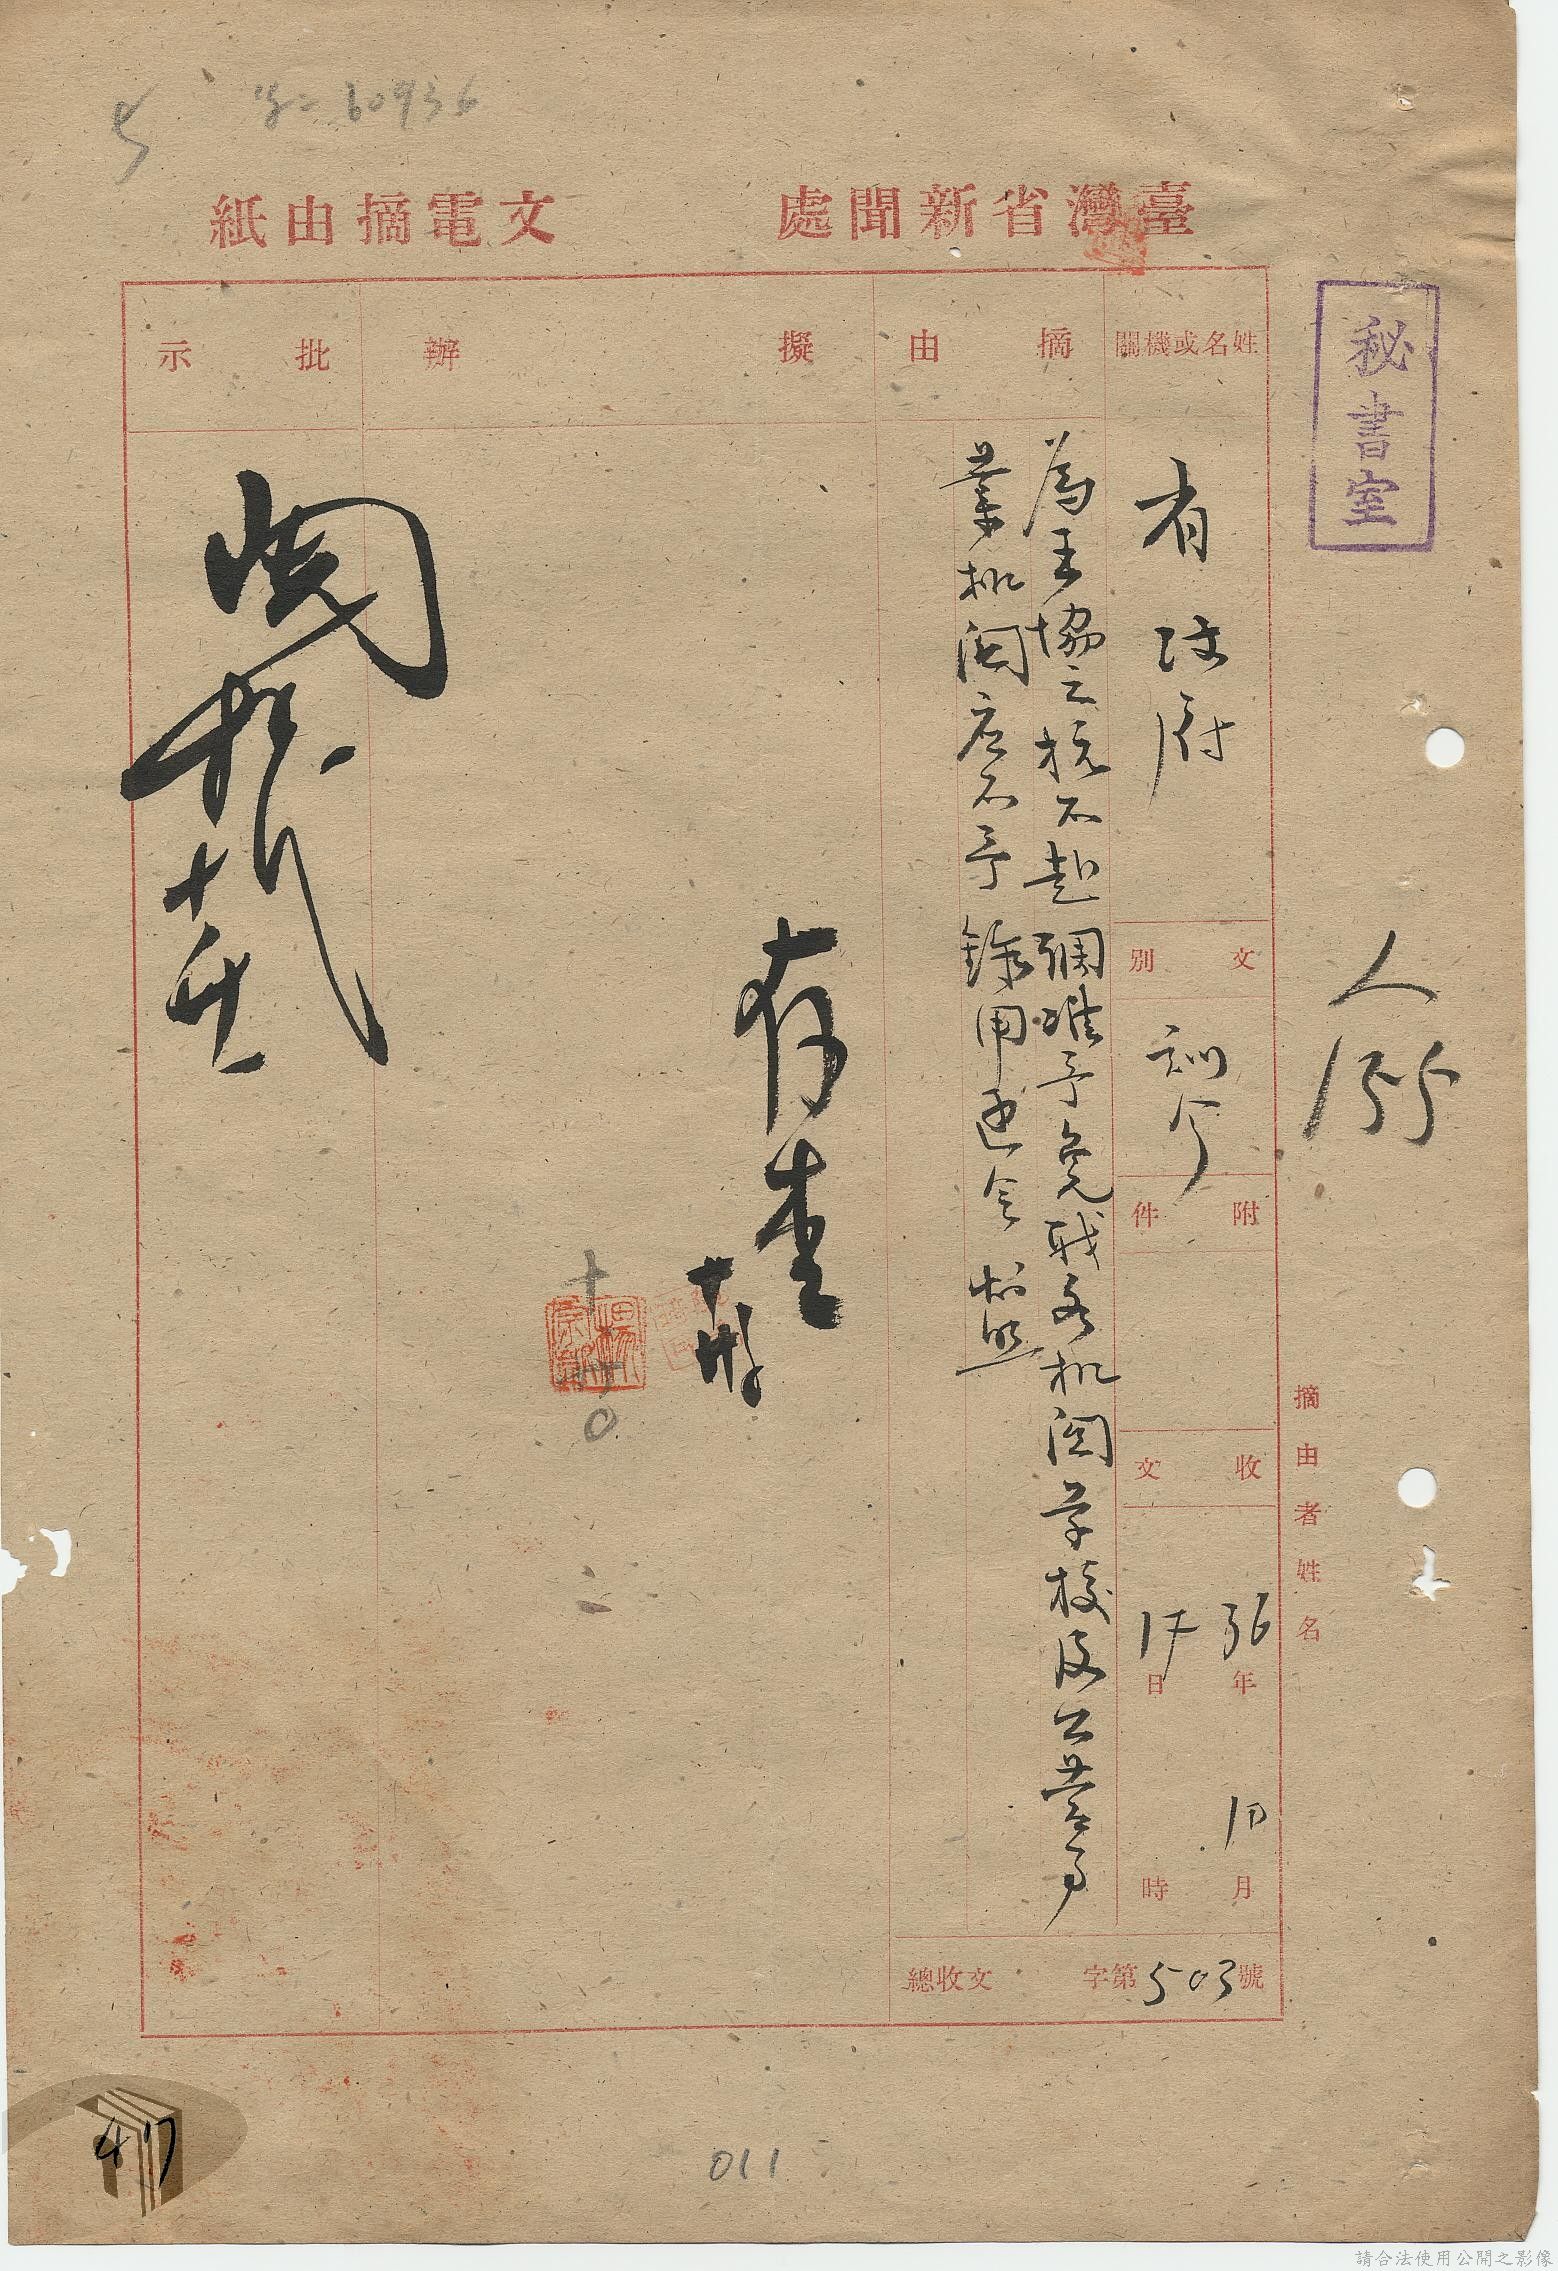 臺灣省新聞處 文電摘由紙
秘書室
人
姓名或機關
省政府
文別
訓令
附件
收文
36年10月17日 時
總收文 字第503號
摘由
為王協之抗不赴調准予免职各机関学校及公营事
業机関应不予錄用通令知照
擬辦
存查
批示
摘由者姓名
60936
011
47
請合法使用公開之影像